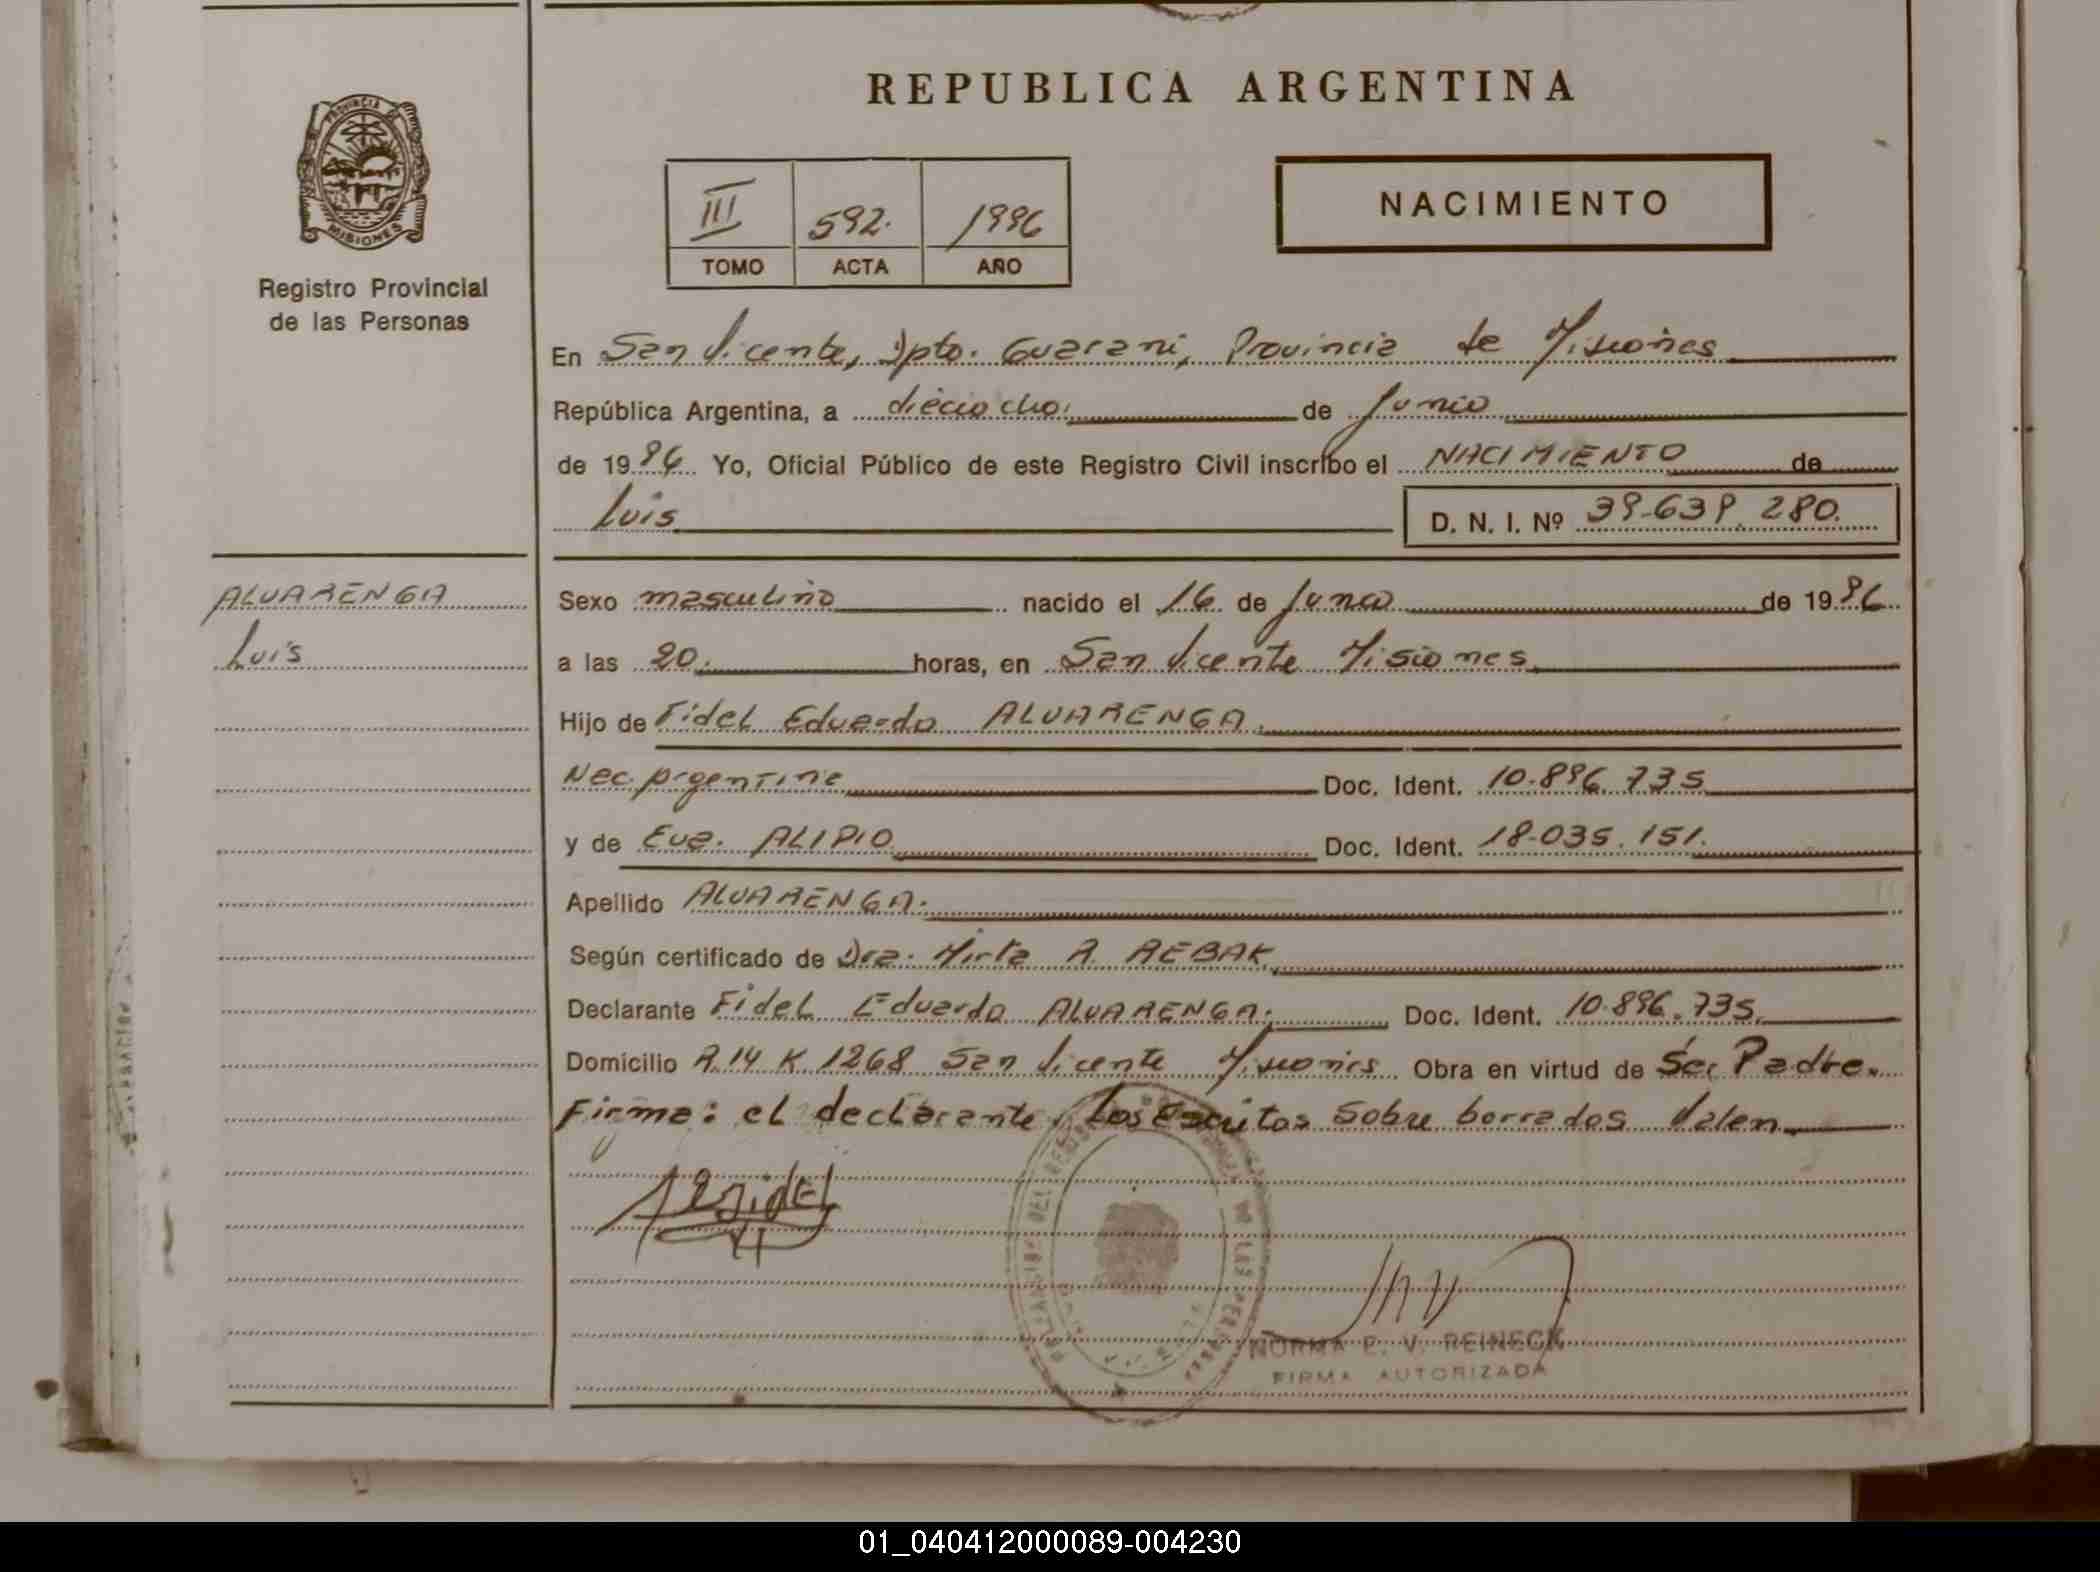 REPUBLICA ARGENTINA
PROVINCIA DE
MISIONES
Registro Provincial
de las Personas
III 592. 1996
TOMO ACTA AÑO
NACIMIENTO
En San Vicente, Dpto. Guarani, Provincia de Misiones
República Argentina, a dieciocho de Junio
de 1996 Yo, Oficial Público de este Registro Civil inscribo el NACIMIENTO de
Luis D. N. I. Nº 39.639.280.
ALVARENGA
Luis
Sexo masculino nacido el 16 de Junio de 1996
a las 20. horas, en San Vicente Misiones
Hijo de Fidel Eduardo ALVARENGA.
Nac. Argentina Doc. Ident. 10.896.735
y de Eva. ALIPIO Doc. Ident. 18.035.151.
Apellido ALVARENGA.
Según certificado de Dra. Mirta R. REBAK
Declarante Fidel Eduardo ALVARENGA. Doc. Ident. 10.896.735.
Domicilio R.14 K 1268 San Vicente Misiones Obra en virtud de Ser Padre.
Firma: el declarante. Los Escritos sobre borrados Valen.
NORMA E. V. REINECK
FIRMA AUTORIZADA
01_040412000089-004230